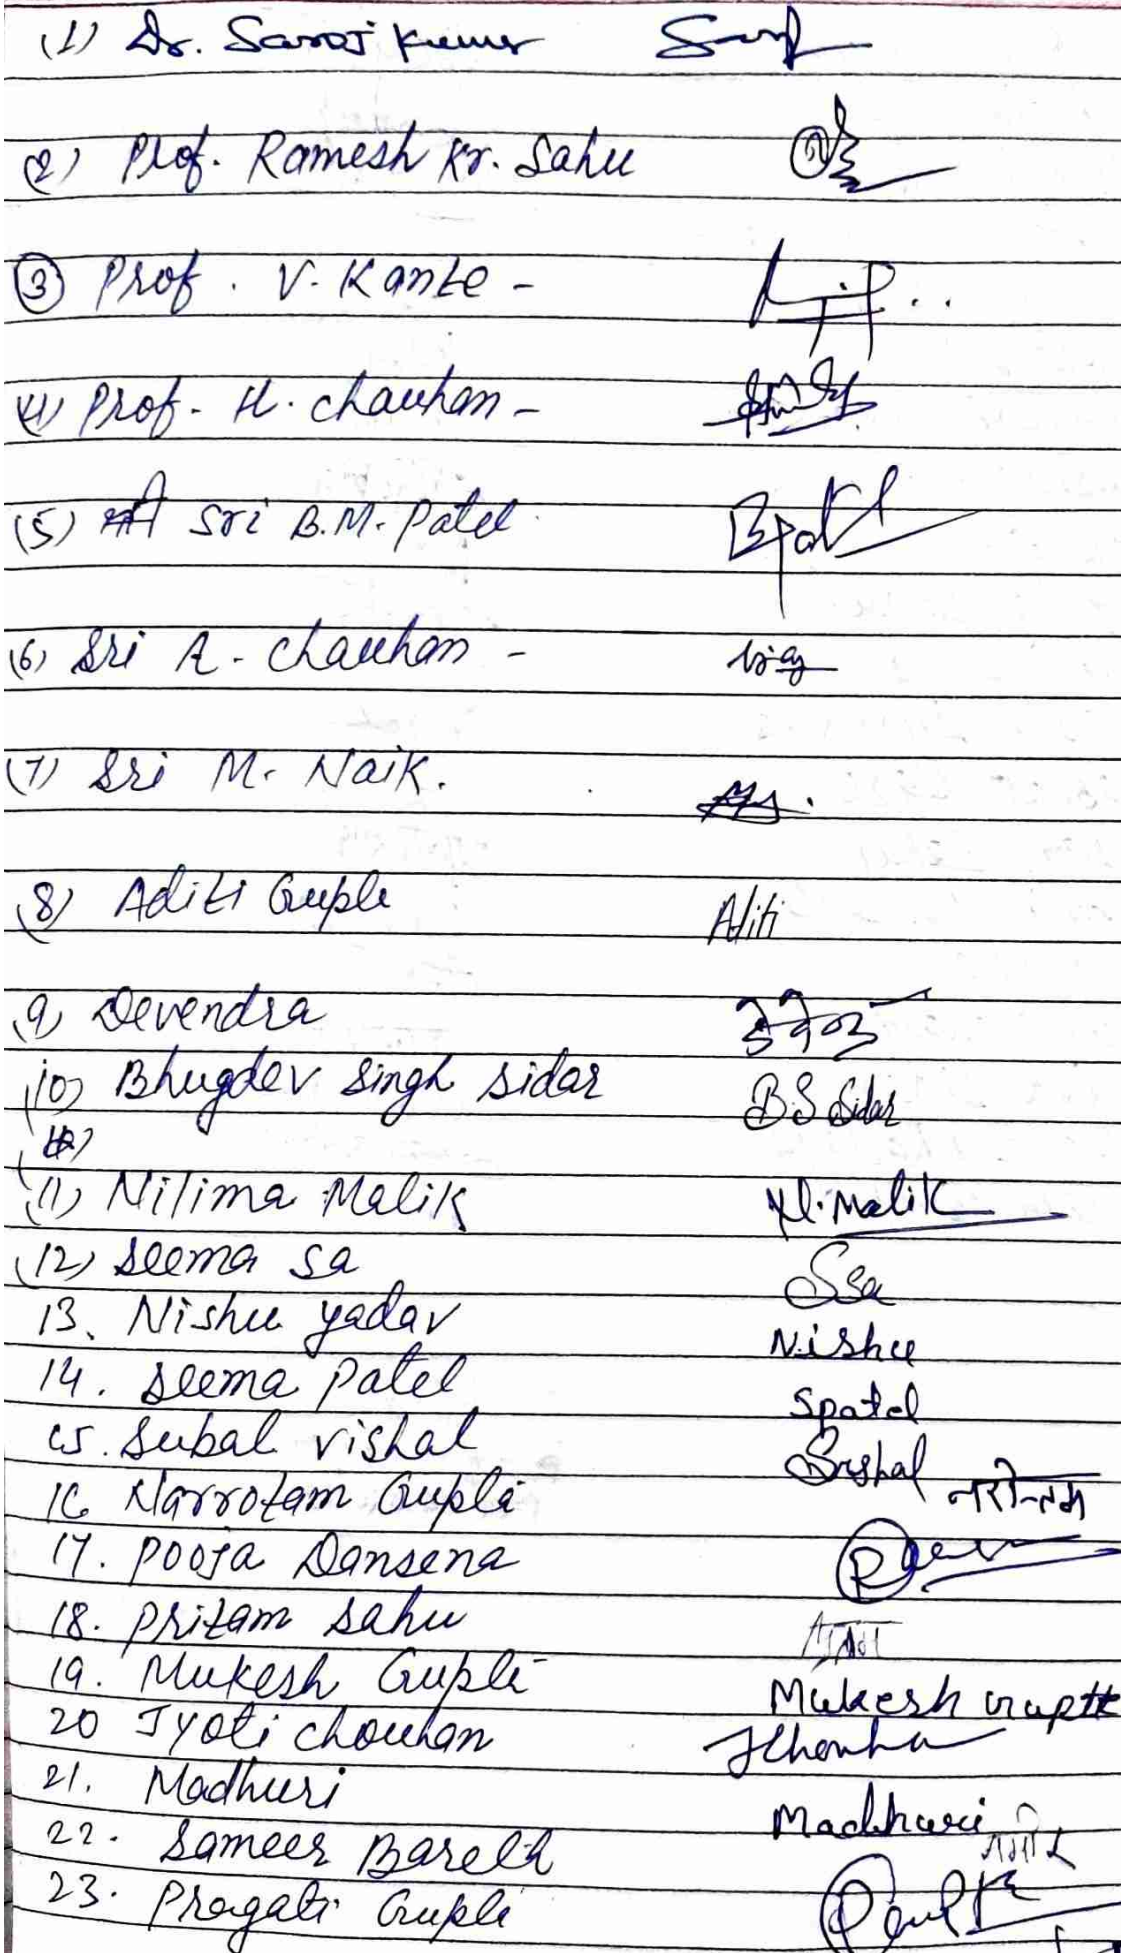 (1) Dr. Saroj Kumar
(2) Prof. Ramesh Kr. Sahu
(3) Prof. V. Kante -
(4) Prof. H. Chauhan -
(5) Sri B.M. Patel Bpatl
(6) Sri A. Chauhan -
(7) Sri M. Naik.
(8) Aditi Gupta Aditi
(9) Devendra देवेन्द्र
(10) Bhugdev Singh Sidar BS Sidar
(11) Nilima Malik N. Malik
(12) Seema Sa SSa
13. Nishu yadav Nishu
14. Seema Patel Spatel
15. Subal vishal Svishal
16 Narrotam Gupta नरोत्तम
17. Pooja Dansena
18. Pritam Sahu
19. Mukesh Gupta Mukesh Gupta
20 Jyoti Chouhan JChouha
21. Madhuri Madhuri
22. Sameer Bareth
23. Pragati Gupta